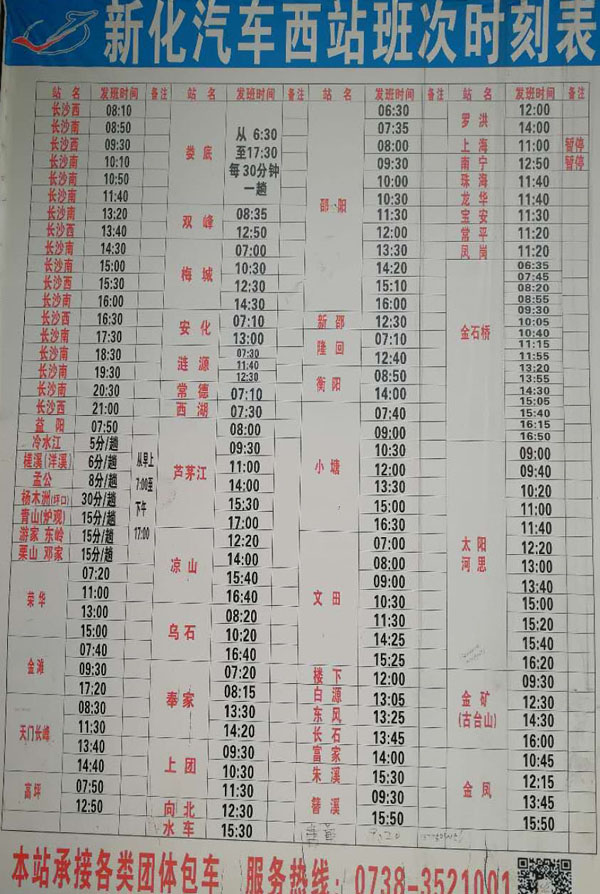 新化汽车西站班次时刻表
站 名 发班时间 备注
长沙西 08:10
长沙南 08:50
长沙西 09:30
长沙南 10:10
长沙南 10:50
长沙西 11:40
长沙南 13:20
长沙西 13:40
长沙南 14:30
长沙南 15:00
长沙西 15:30
长沙南 16:00
长沙西 16:30
长沙南 17:30
长沙南 18:30
长沙南 19:30
长沙南 20:30
长沙西 21:00
益 阳 07:50
冷水江 5分/趟
槎溪(洋溪) 6分/趟
孟公 8分/趟
杨木洲(坪口) 30分/趟
青山(炉观) 15分/趟
游家 东岭 15分/趟
栗山 邓家 15分/趟
从早上
7:00至
下午
17:00
荣华 07:20
11:00
13:00
15:00
金滩 07:40
09:30
17:20
天门长峰 08:30
11:30
13:40
14:40
高坪 07:50
12:50
站 名 发班时间 备注
娄底 从 6:30
至17:30
每 30分钟
一趟
双峰 08:35
12:50
梅城 07:00
10:30
12:30
14:30
安化 07:10
13:00
涟源 07:30
11:40
12:30
常德 07:10
西湖 07:30
芦茅江 08:00
09:30
11:00
14:00
15:30
17:00
凉山 12:20
14:00
15:40
16:40
乌石 08:20
10:20
16:40
奉家 07:20
08:15
13:30
14:20
上团 09:30
10:30
11:30
向北 12:30
水车 15:30
站 名 发班时间 备注
邵阳 06:30
07:35
08:00
09:30
10:00
10:30
11:30
12:00
13:30
14:20
15:10
16:00
新邵 12:30
隆回 07:10
12:40
衡阳 08:50
14:00
小塘 07:40
09:00
10:30
12:00
13:30
15:00
16:30
文田 07:00
08:00
09:00
10:30
11:30
14:25
15:25
楼下 12:00
白源 13:05
东风 13:25
长石 13:45
富家 14:00
朱溪 15:30
簪溪 09:30
15:50
站 名 发班时间 备注
罗洪 12:00
14:00
上海 11:00 暂停
南宁 12:50 暂停
珠海 11:40
龙华 11:40
宝安 11:30
常平 11:20
凤岗 11:20
金石桥 06:35
07:45
08:20
08:55
09:30
10:05
10:40
11:15
11:55
13:20
13:55
14:30
15:05
15:40
16:15
16:50
太阳
河思 09:00
09:40
10:20
11:00
11:40
12:20
13:00
13:40
15:00
15:20
15:40
16:20
金矿
(古台山) 09:30
12:30
14:30
16:00
金凤 10:45
12:15
13:45
15:50
本站承接各类团体包车 服务热线：0738-3521001